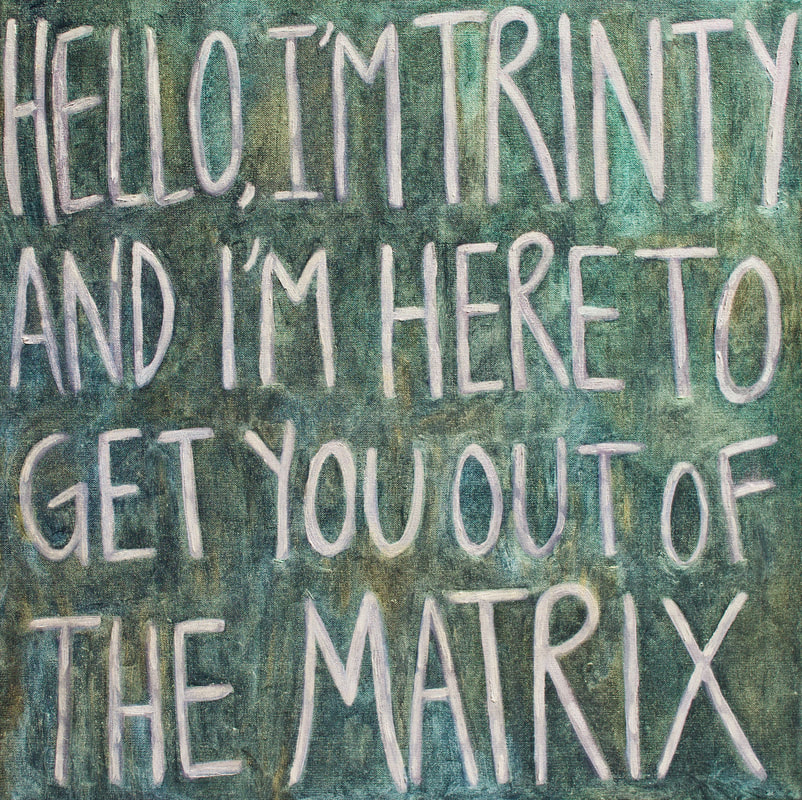 HELLO, I'M TRINTY
AND I'M HERE TO
GET YOU OUT OF
THE MATRIX